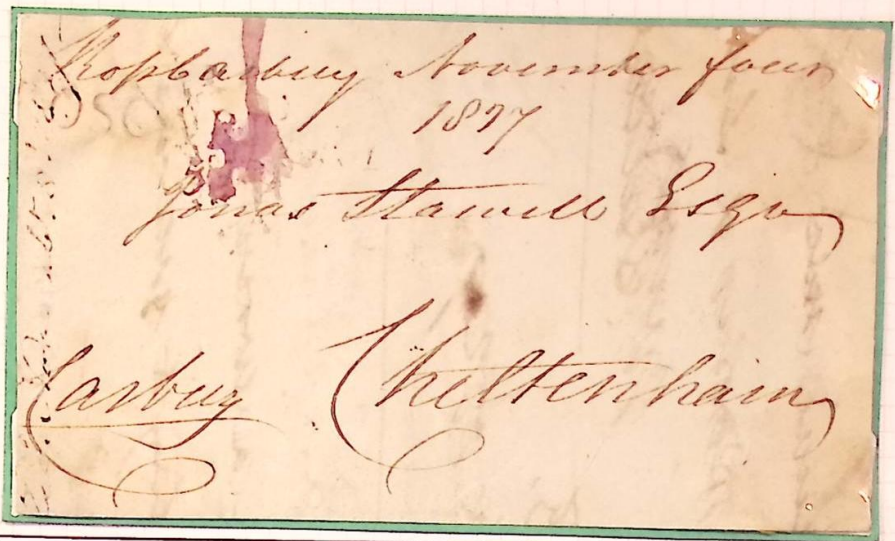 Rosscarbery November four
1827
Jonas Stawell Esqr
Carbery Cheltenham